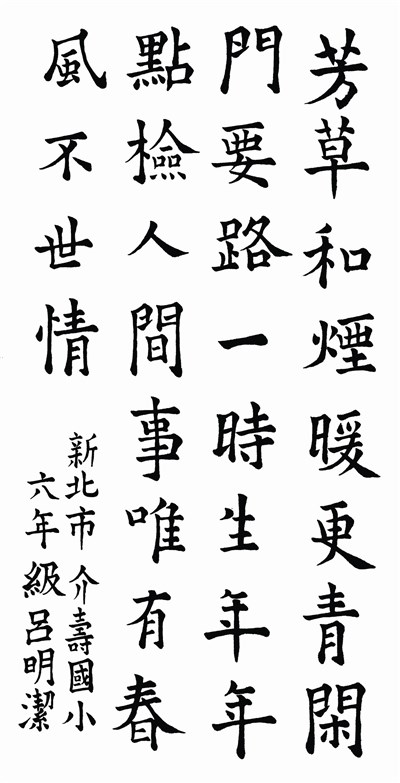 芳草和煙暖更青閑
門要路一時生年年
點檢人間事唯有春
風不世情
新北市介壽國小
六年級呂明潔